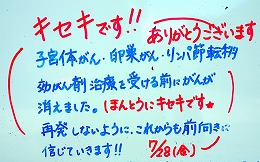 キセキです!!
ありがとうございます
子宮体がん・卵巣がん・リンパ節転移
効がん剤治療を受ける前にがんが
消えました。(ほんとうにキセキです★
再発しないように、これからも前向きに
信じていきます!! 7/28(金)